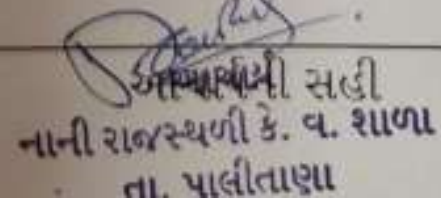 આચાર્યની સહી
નાની રાજસ્થળી કે. વ. શાળા
તા. પાલીતાણા